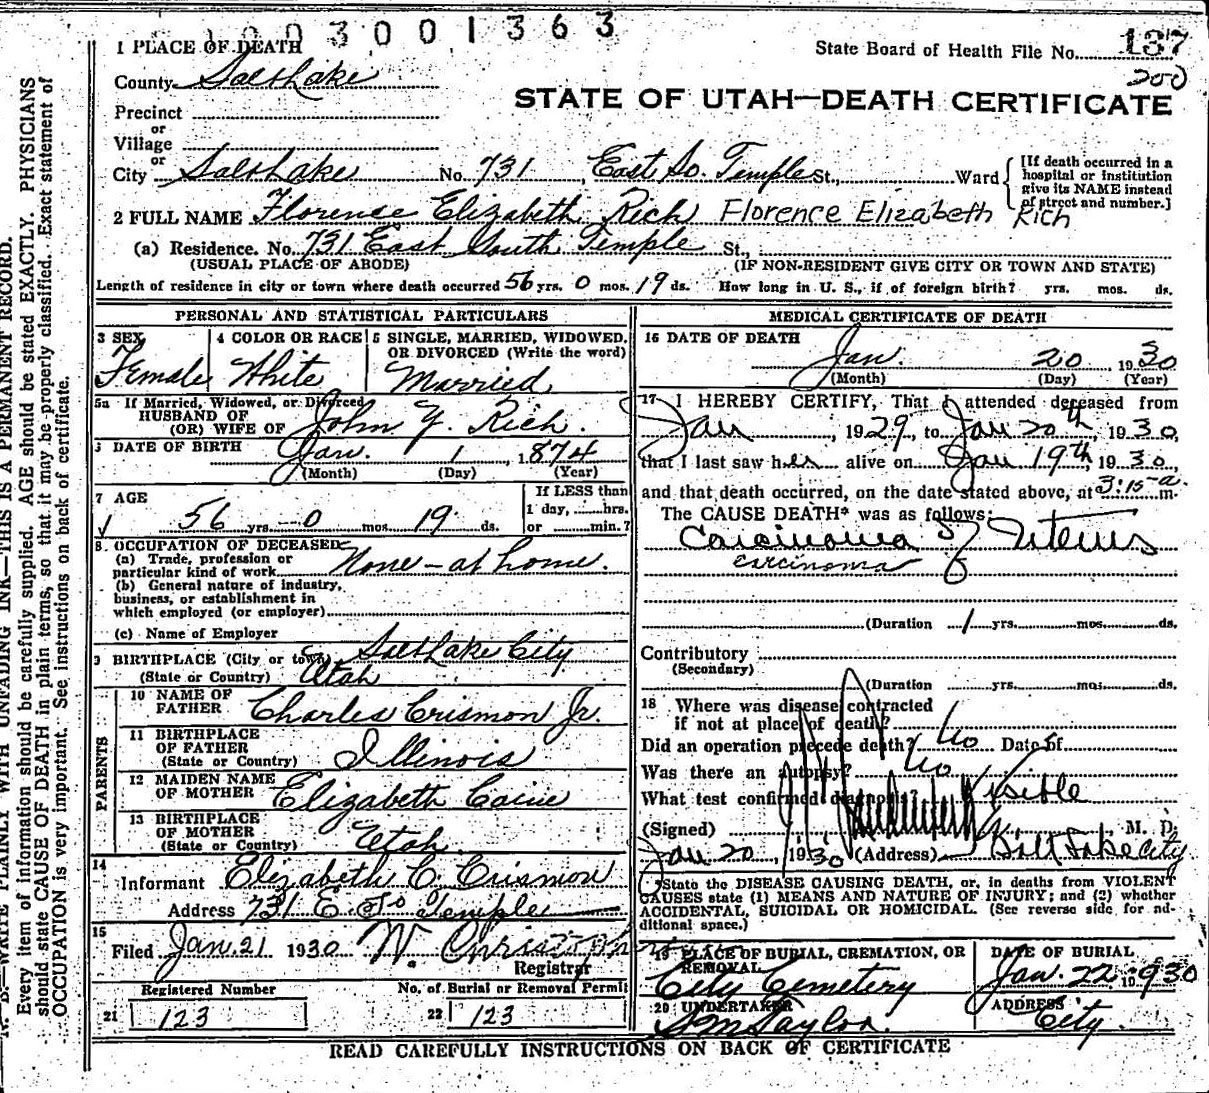 003001363
State Board of Health File No. 137
200
STATE OF UTAH—DEATH CERTIFICATE
1 PLACE OF DEATH
County Salt Lake
Precinct
or
Village
or
City Salt Lake No. 731 East So. Temple St., Ward
[If death occurred in a hospital or institution give its NAME instead of street and number.]
2 FULL NAME Florence Elizabeth Rich Florence Elizabeth Rich
(a) Residence. No. 731 East South Temple St.,
(USUAL PLACE OF ABODE) (IF NON-RESIDENT GIVE CITY OR TOWN AND STATE)
Length of residence in city or town where death occurred 56 yrs. 0 mos. 19 ds. How long in U. S., if of foreign birth? yrs. mos. ds.
PERSONAL AND STATISTICAL PARTICULARS
3 SEX Female
4 COLOR OR RACE White
5 SINGLE, MARRIED, WIDOWED, OR DIVORCED (Write the word) Married
5a If Married, Widowed, or Divorced
HUSBAND OF
(OR) WIFE OF John Y. Rich.
DATE OF BIRTH Jan. 1, 1874
(Month) (Day) (Year)
7 AGE 56 yrs. 0 mos. 19 ds.
If LESS than 1 day, hrs. or min.?
8. OCCUPATION OF DECEASED
(a) Trade, profession or
particular kind of work None - at home.
(b) General nature of industry,
business, or establishment in
which employed (or employer)
(c) Name of Employer
9 BIRTHPLACE (City or town) Salt Lake City
(State or Country) Utah
PARENTS
10 NAME OF FATHER Charles Crismon Jr.
11 BIRTHPLACE OF FATHER (State or Country) Illinois
12 MAIDEN NAME OF MOTHER Elizabeth Caine
13 BIRTHPLACE OF MOTHER (State or Country) Utah.
14 Informant Elizabeth C. Crismon
Address 731 E. So Temple
15 Filed Jan. 21 1930 W. Christoph
Registrar
Registered Number No. of Burial or Removal Permit
21 123 22 123
MEDICAL CERTIFICATE OF DEATH
16 DATE OF DEATH
Jan. 20, 1930
(Month) (Day) (Year)
17 I HEREBY CERTIFY, That I attended deceased from
Jan, 1929, to Jan 20th, 1930,
that I last saw her alive on Jan 19th, 1930,
and that death occurred, on the date stated above, at 3:15 a m.
The CAUSE DEATH* was as follows:
Carcinoma of Uterus
carcinoma
(Duration 1 yrs. mos. ds.
Contributory
(Secondary)
(Duration yrs. mos. ds.
18 Where was disease contracted
if not at place of death?
Did an operation precede death? No Date of
Was there an autopsy? No
What test confirmed diagnosis? Visible
(Signed) M. D.
Jan 20, 1930 (Address) Salt Lake City
*State the DISEASE CAUSING DEATH, or, in deaths from VIOLENT
CAUSES state (1) MEANS AND NATURE OF INJURY; and (2) whether
ACCIDENTAL, SUICIDAL OR HOMICIDAL. (See reverse side for additional space.)
19 PLACE OF BURIAL, CREMATION, OR REMOVAL City Cemetery
DATE OF BURIAL Jan. 22 1930
20 UNDERTAKER S M Taylor.
ADDRESS City.
READ CAREFULLY INSTRUCTIONS ON BACK OF CERTIFICATE
N. B.—WRITE PLAINLY WITH UNFADING INK—THIS IS A PERMANENT RECORD.
Every item of information should be carefully supplied. AGE should be stated EXACTLY. PHYSICIANS
should state CAUSE OF DEATH in plain terms, so that it may be properly classified. Exact statement of
OCCUPATION is very important. See instructions on back of certificate.